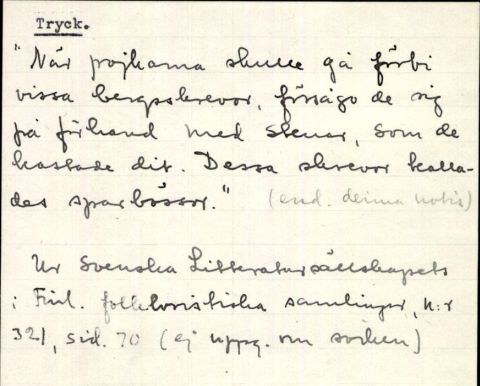 Tryck.
"När pojkarna skulle gå förbi
vissa bergsskrevor, försågo de sig
på förhand med stenar, som de
kastade dit. Dessa skrevor kalla-
des sparbössor." (end. denna notis)
Ur Svenska Litteratursällskapets
i Finl. folkloristiska samlingar, n:r
321, sid. 70 (ej uppg. om socken)